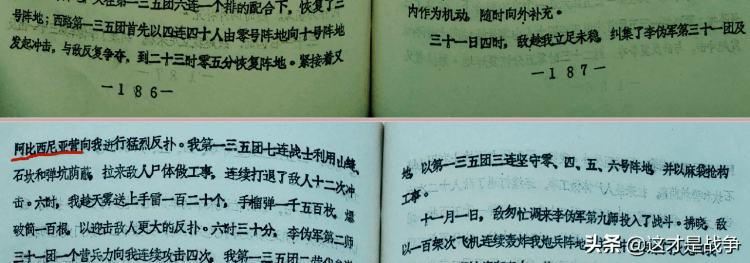 号阵地;西路第一三五团首先以四连四十人由零号阵地向十号阵地
发起冲击,与敌反复争夺,到二十三时零五分恢复阵地。紧接着又
—186—
内作为机动,随时向外补充。
三十一日四时,敌趁我立足未稳,纠集了李伪军第三十一团及
—187—
阿比西尼亚营向我进行猛烈反扑。我第一三五团七连战士利用山缝、
石坎和弹坑荫蔽,拉来敌人尸体做工事,连续打退了敌人十二次冲
击。六时,我趁天雾送上手雷一百二十个,手榴弹一千五百枚,爆
破筒一百根,以迎击敌人更大的反扑。六时三十分,李伪军第二师
三十一团一个营兵力向我连续攻击四次,我第一三五团二营
地,以第一三五团三连坚守零、四、五、六号阵地,并以麻袋抢构
工事。
十一月一日,敌匆忙调来李伪军第九师投入了战斗。拂晓,敌
以一百架次飞机连续轰炸我炮兵阵地
头条 @这才是战争